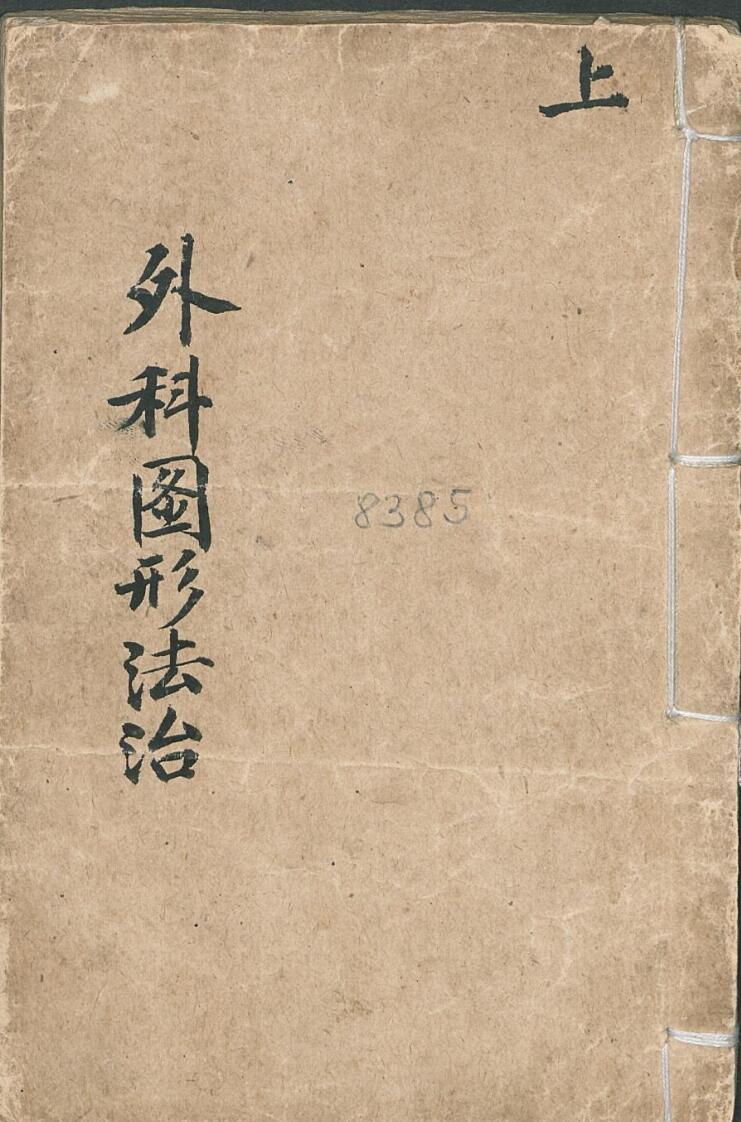 上
外科圖形法治
8385